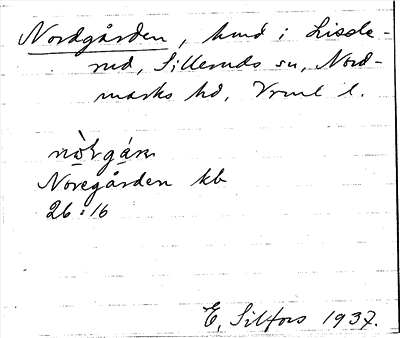 Nordgården, hmd i Lissle-
rud, Silleruds sn, Nord-
marks hd, Vrml l.
nòrgán
Noregården kb
26:16
E. Silfors 1937.